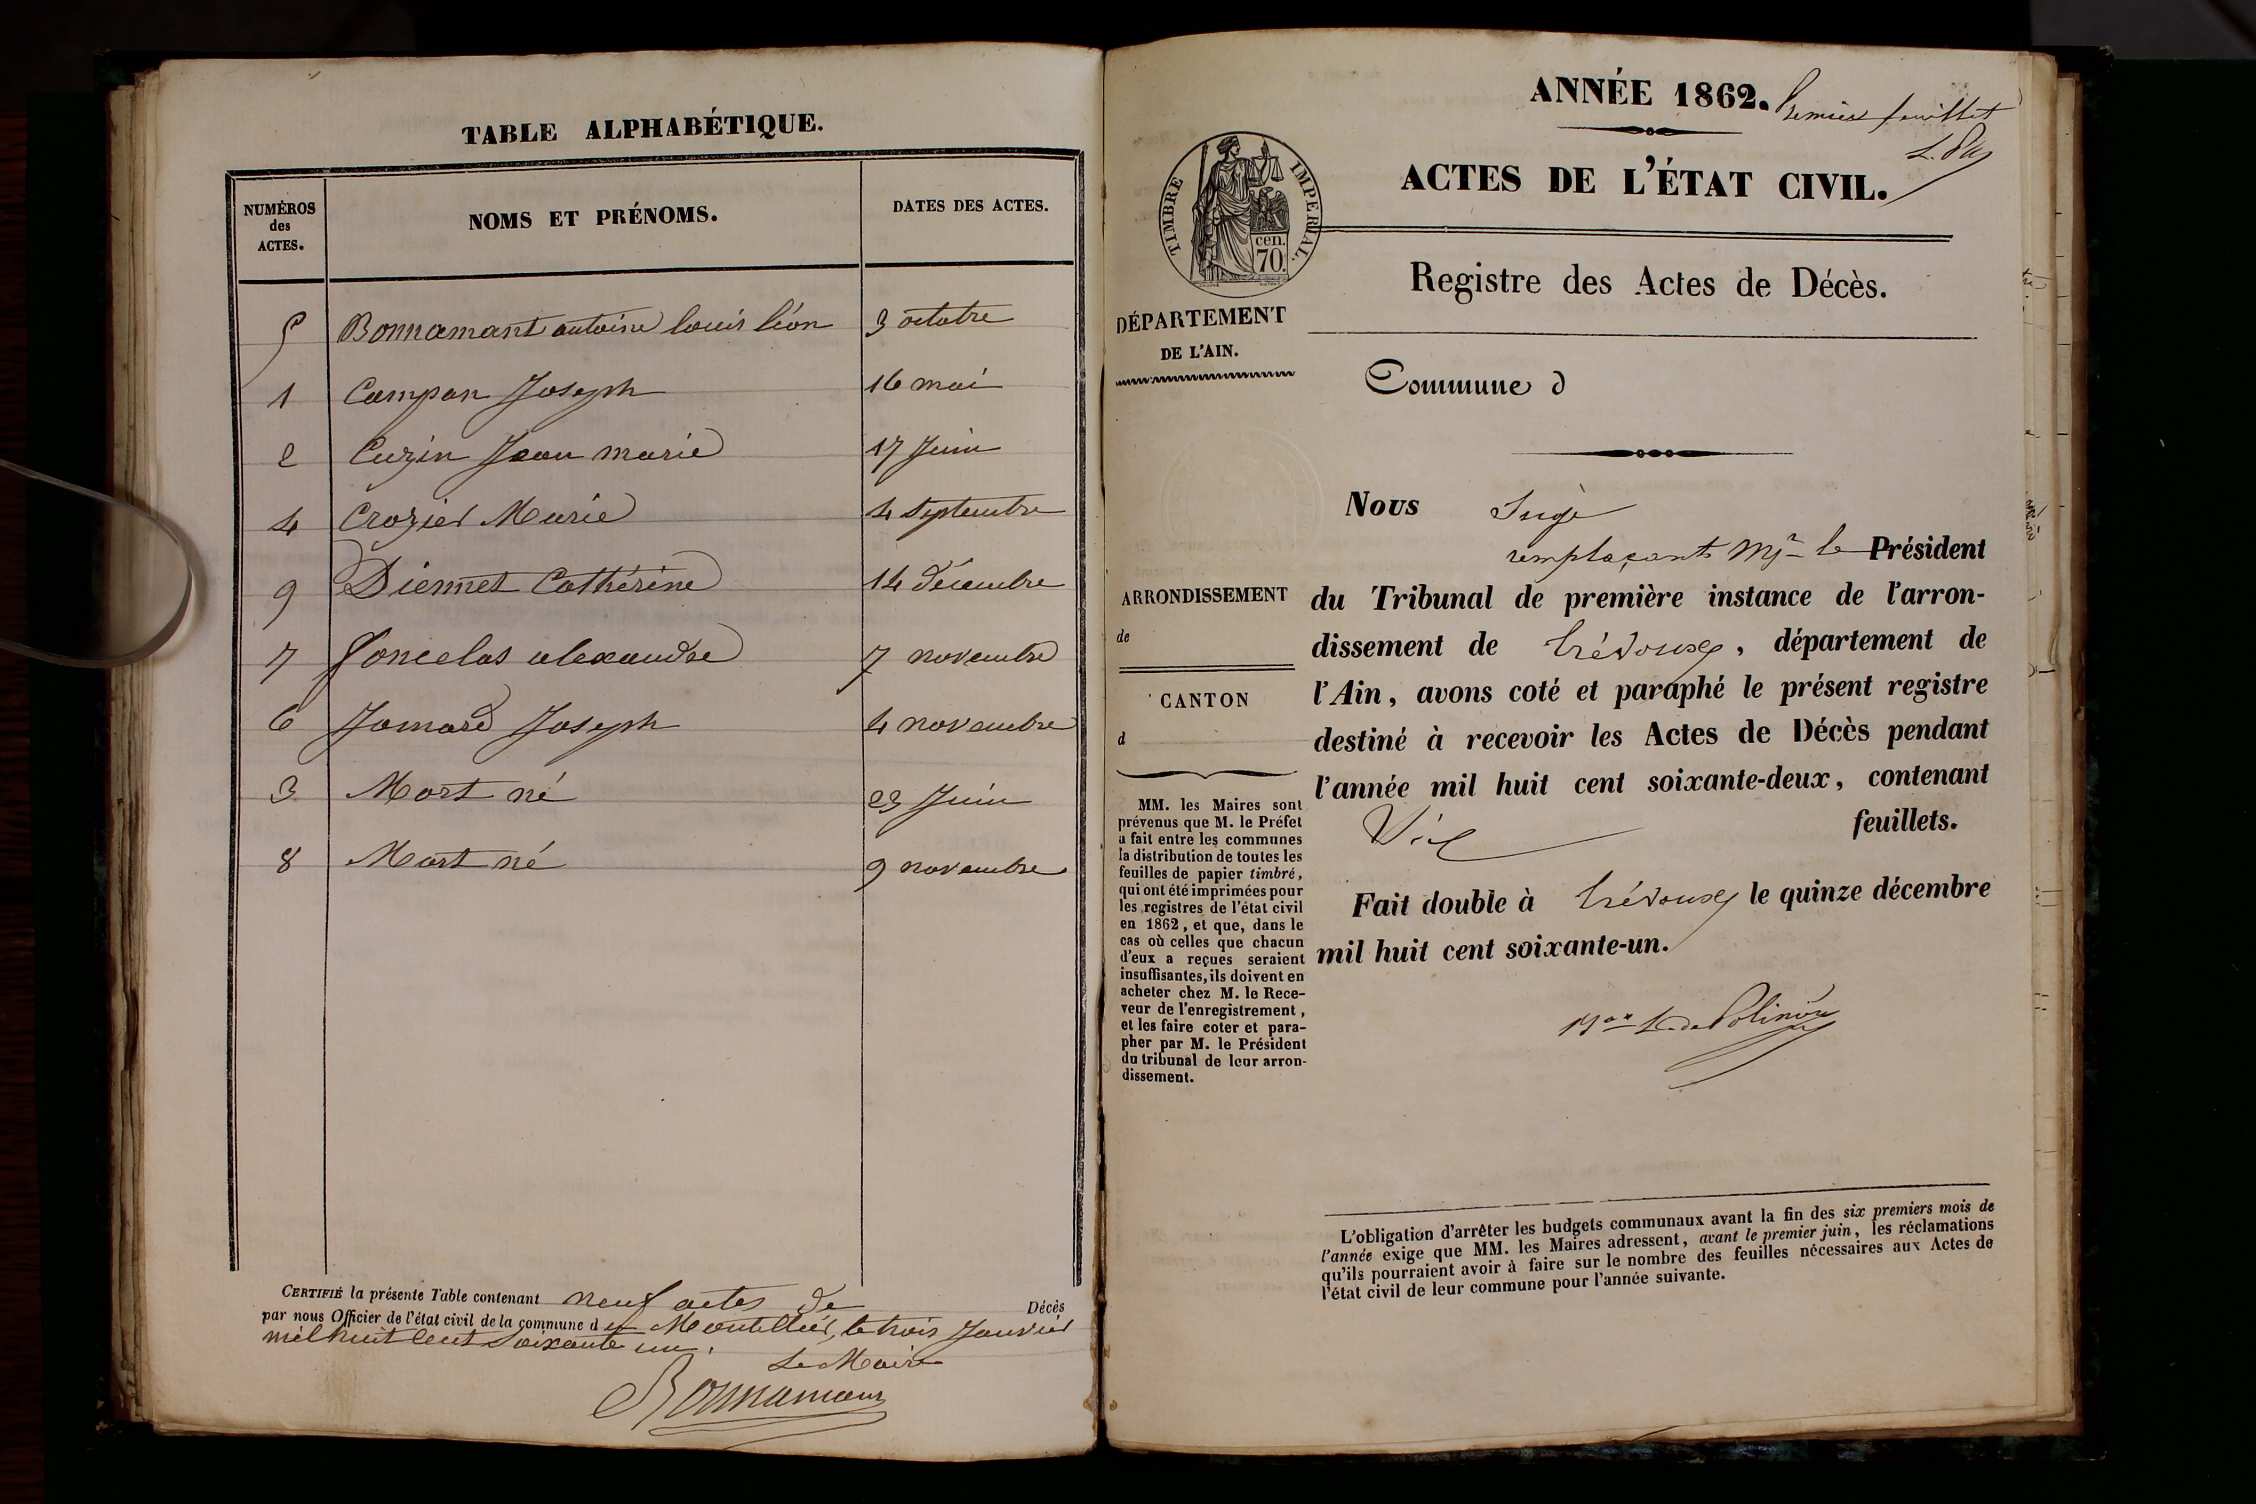 TABLE ALPHABÉTIQUE.
NUMÉROS des ACTES. NOMS ET PRÉNOMS. DATES DES ACTES.
5 Bonnamant antoine louis léon 3 octobre
1 Campan Joseph 16 mai
2 Cuzin Jean marie 17 Juin
4 Crozier Marie 4 septembre
9 Diennet Cathérine 14 décembre
7 Joncelas alexandre 7 novembre
6 Jomard Joseph 4 novembre
3 Mort né 23 Juin
8 Mort né 9 novembre
CERTIFIÉ la présente Table contenant neuf actes de Décès
par nous Officier de l'état civil de la commune d Montellier, le trois Janvier
mil huit Cent Soixante un.
Le Maire
Bonnamour
ANNÉE 1862. Premier feuillet
ACTES DE L'ÉTAT CIVIL.
TIMBRE IMPERIAL.
cen.
70.
Registre des Actes de Décès.
DÉPARTEMENT
DE L'AIN.
Commune d
Nous Juge
remplaçant Mr le Président
du Tribunal de première instance de l'arron-
dissement de Trévoux, département de
l'Ain, avons coté et paraphé le présent registre
destiné à recevoir les Actes de Décès pendant
l'année mil huit cent soixante-deux, contenant
feuillets.
Fait double à Trévoux le quinze décembre
mil huit cent soixante-un.
ARRONDISSEMENT
de
CANTON
d
MM. les Maires sont
prévenus que M. le Préfet
a fait entre les communes
la distribution de toutes les
feuilles de papier timbré,
qui ont été imprimées pour
les registres de l'état civil
en 1862, et que, dans le
cas où celles que chacun
d'eux a reçues seraient
insuffisantes, ils doivent en
acheter chez M. le Rece-
veur de l'enregistrement,
et les faire coter et para-
pher par M. le Président
du tribunal de leur arron-
dissement.
L'obligation d'arrêter les budgets communaux avant la fin des six premiers mois de
l'année exige que MM. les Maires adressent, avant le premier juin, les réclamations
qu'ils pourraient avoir à faire sur le nombre des feuilles nécessaires aux Actes de
l'état civil de leur commune pour l'année suivante.